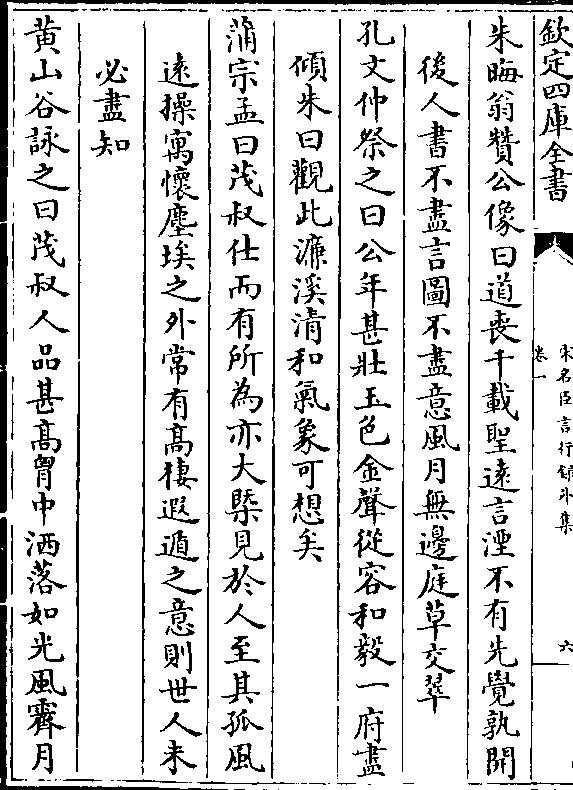 欽定四庫全書
宋名臣言行録外集
卷一
六
朱晦翁贊公像曰道喪千載聖遠言湮不有先覺孰開
後人書不盡言圖不盡意風月無邊庭草交翠
孔文仲祭之曰公年甚壯玉色金聲從容和毅一府盡
傾朱曰觀此濂溪清和氣象可想矣
蒲宗孟曰茂叔仕而有所為亦大槩見於人至其孤風
逺操寓懷塵埃之外常有髙棲遐遁之意則世人未
必盡知
黄山谷詠之曰茂叔人品甚髙胷中洒落如光風霽月